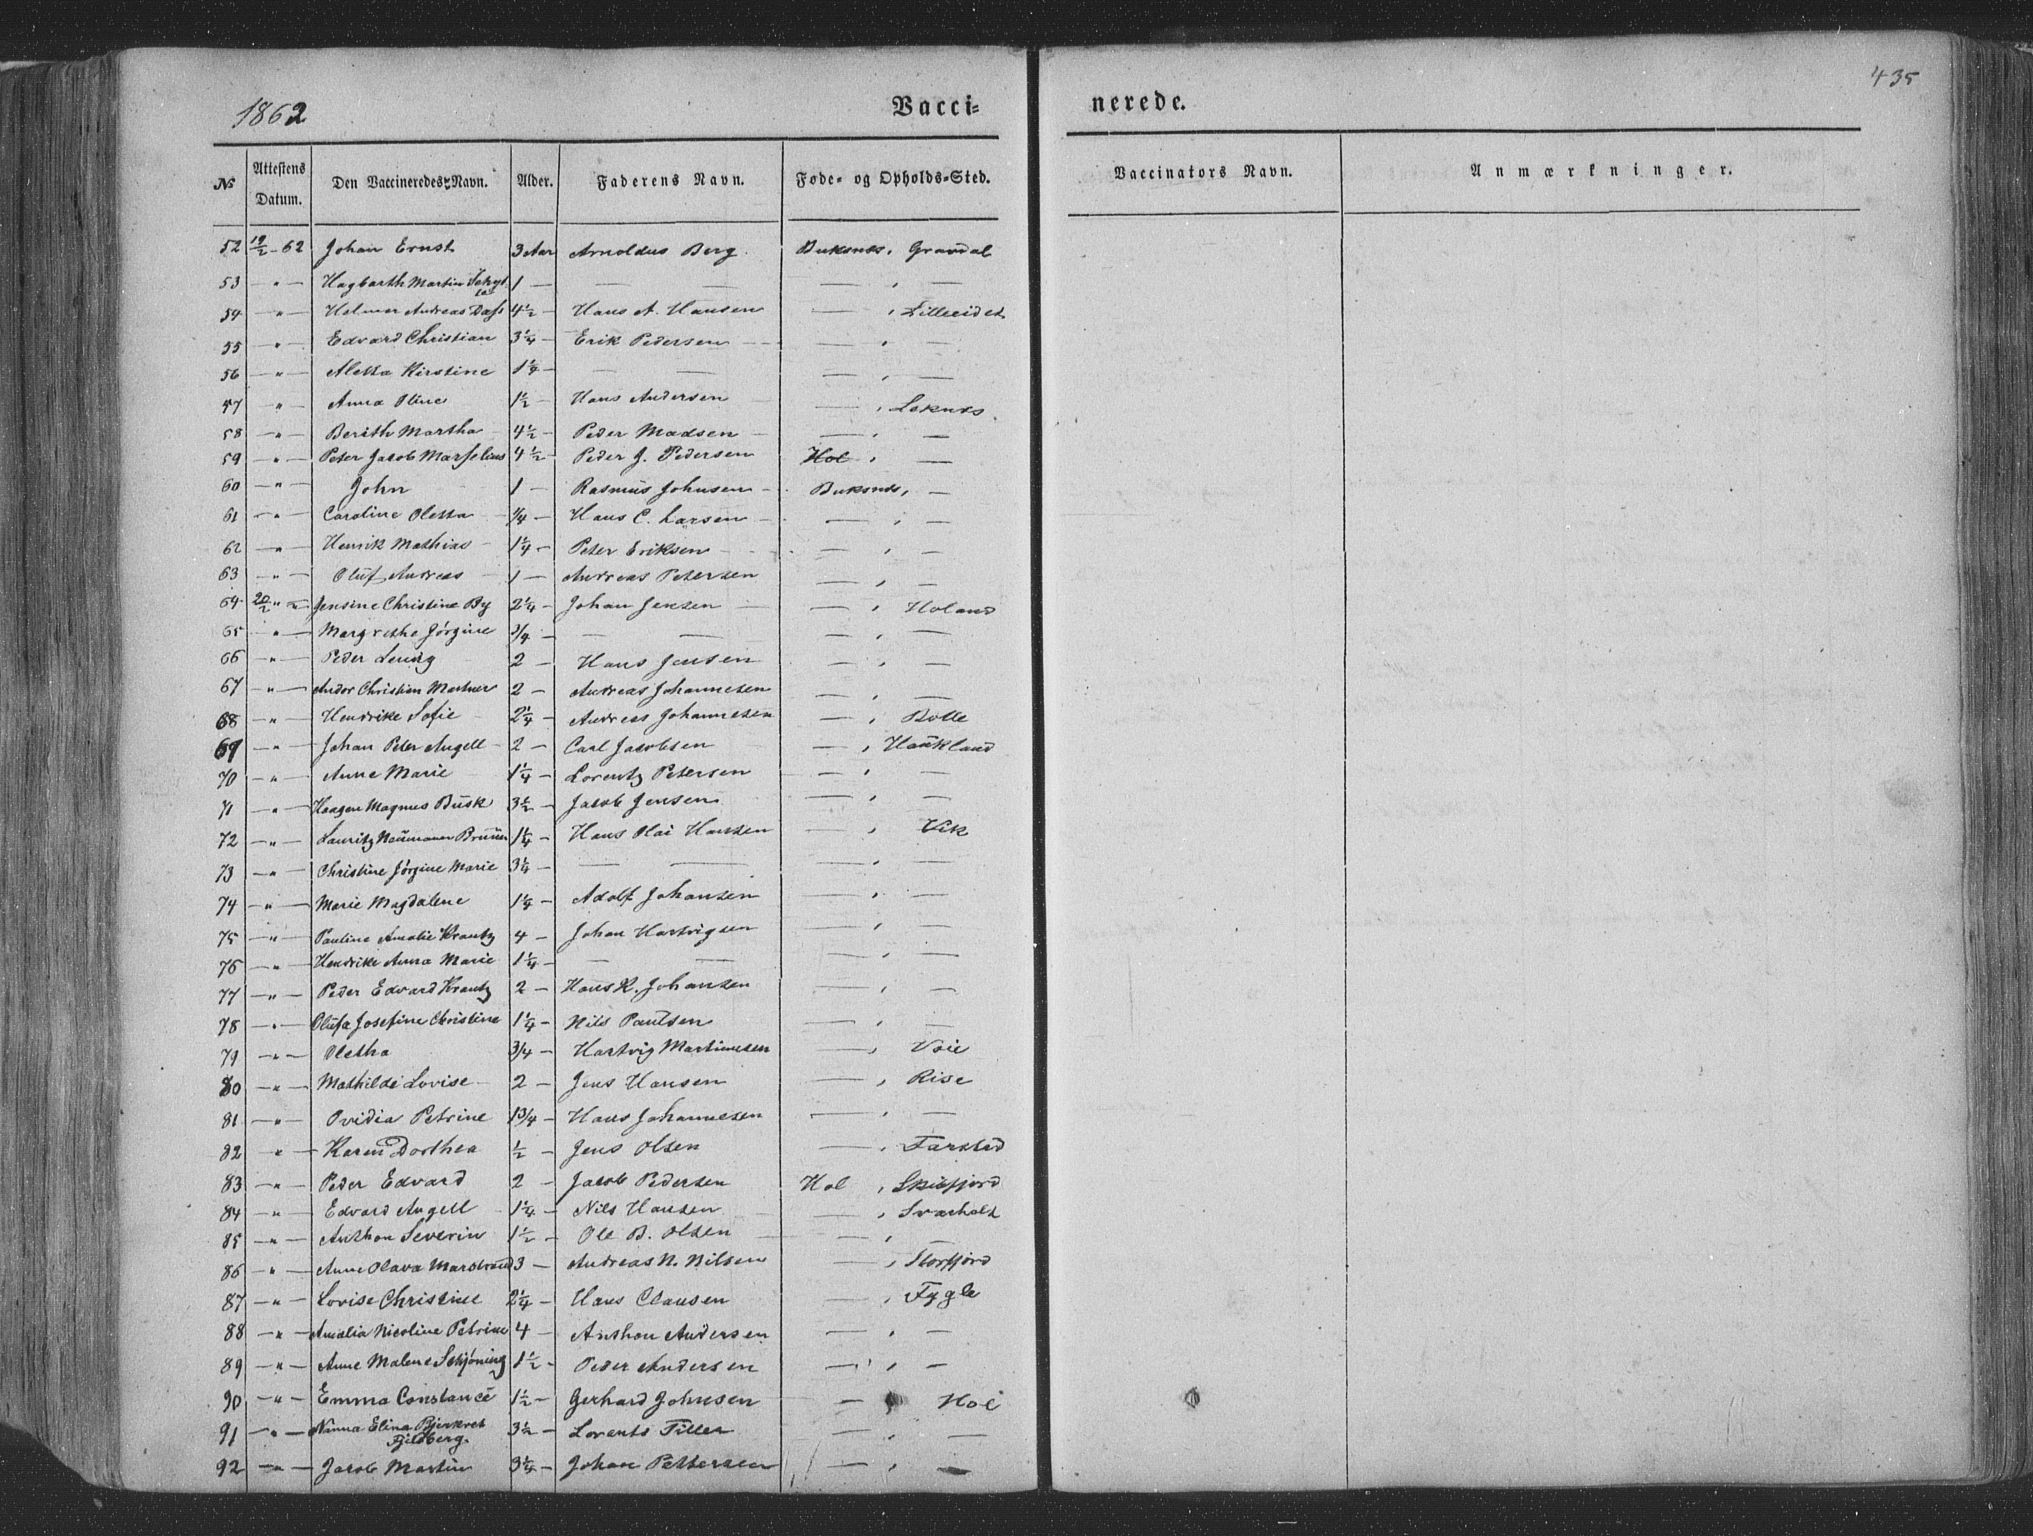 435
1862 Vaccinerede.
№ Attestens Datum. Den Vaccineredes Navn. Alder. Faderens Navn. Føde- og Opholds-Sted. Vaccinators Navn. Anmærkninger.
52 19/2 - 62 Johan Ernst 3 Aar Arnoldus Berg Buksnes, Gravdal
53 — " — Hagbarth Martin 1 — — — — , —
54 — " — Helmer Andreas Dass 4 1/2 — Hans A. Hansen — , Lilleeidet
55 — " — Edvard Christian 3 1/4 — Erik Pedersen — , —
56 — " — Aletta Kirstine 1 1/4 — — — — , —
57 — " — Anna Oline 1 1/2 — Hans Andersen — , Leknes
58 — " — Berith Martha 4 1/2 — Peder Madsen — , —
59 — " — Peter Jacob Marselius 4 1/2 — Peder J. Pedersen Hol , —
60 — " — John 1 — Rasmus Johnsen Buksnes, —
61 — " — Caroline Oletta 1/4 — Hans C. Larsen — , —
62 — " — Henrik Mathias 1 1/4 — Peter Eriksen — , —
63 — " — Oluf Andreas 1 — Andreas Petersen — , —
64 20/2 " — Jensine Christine By 2 1/4 — Johan Jensen — , Holand
65 — " — Margrethe Jørgine 3/4 — — — — , —
66 — " — Peder Lenvig 2 — Hans Jensen — , —
67 — " — Andor Christian Martner 2 — Andreas Johannesen — , —
68 — " — Hendrike Sofie 2 1/4 — Andreas Johannesen — , Bolle
69 — " — Johan Peter Angell 2 — Carl Jacobsen — , Haukland
70 — " — Anne Marie 1 1/4 — Lorentz Petersen — , —
71 — " — Haagen Magnus Busk 3 1/2 — Jacob Jensen — , —
72 — " — Lauritz Naumann Bruun 1 1/4 — Hans Olai Hansen — , Vik
73 — " — Christine Jørgine Marie 3 1/4 — — — — , —
74 — " — Marie Magdalene 1 1/4 — Adolf Johansen — , —
75 — " — Pauline Amalie Krantz 4 — Johan Hartvigsen — , —
76 — " — Hendrike Anna Marie 1 1/4 — — — — , —
77 — " — Peder Edvard Krantz 2 — Hans K. Johansen — , —
78 — " — Olufa Josefine Christine 1 1/4 — Nils Paulsen — , —
79 — " — Oletha 3/4 — Hartvig Martinesen — , Voie
80 — " — Mathilde Lovise 2 — Jens Hansen — , Rise
81 — " — Ovidia Petrine 1 3/4 — Hans Johannesen — , —
82 — " — Karen Dorthea 1/2 — Jens Olsen — , Farsted
83 — " — Peder Edvard 2 — Jacob Pedersen Hol , Skifjord
84 — " — Edvard Angell 1 1/4 — Nils Hansen — , Svarholt
85 — " — Anthon Severin 1 1/2 — Ole B. Olsen — , —
86 — " — Anne Olava Marstrand 3 — Andreas N. Nilsen — , Storfjord
87 — " — Lovise Christine 2 1/4 — Hans Clausen — , Fygle
88 — " — Amalia Nicoline Petrine 4 — Anthon Andersen — , —
89 — " — Anne Malene Schjøning 1 1/2 — Peder Andersen — , —
90 — " — Emma Constance 1 1/2 — Gerhard Johnsen — Hol
91 — " — Nanna Elina Bjerkvet Fjeldberg 3 1/2 — Lorents Tiller — , —
92 — " — Jacob Martin 3 1/4 — Johan Pettersen — , —